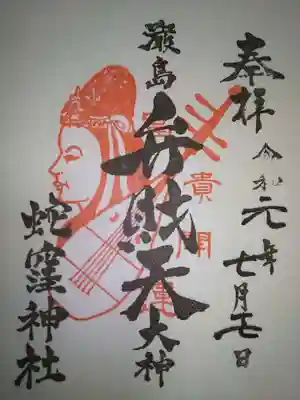 奉拝
令和元年七月七日
厳島
弁財天
大神
貴
開
運
蛇窪神社